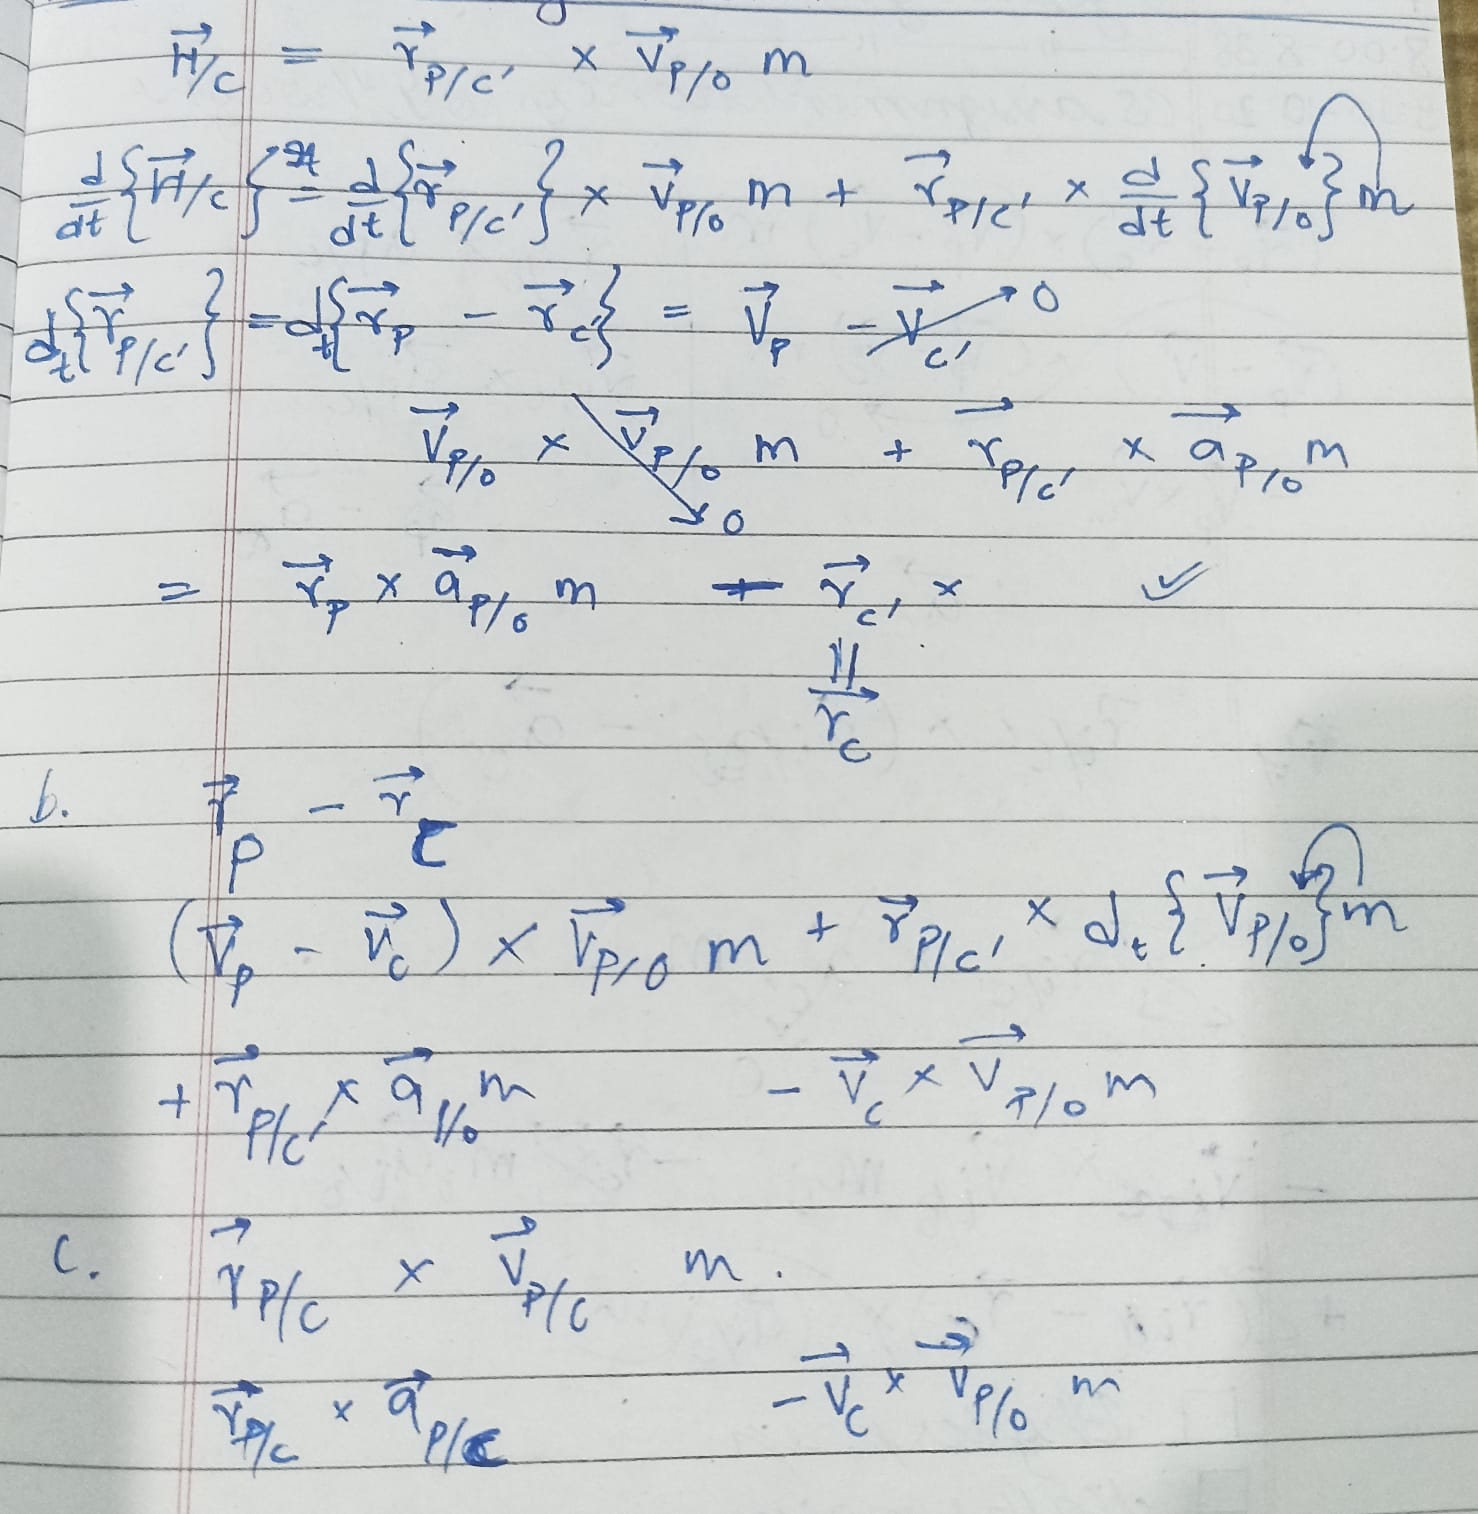 H⃗/C = r⃗P/C' × V⃗P/O m
d/dt {H⃗/C} = d/dt {r⃗P/C'} × V⃗P/O m + r⃗P/C' × d/dt {V⃗P/O} m
dt {r⃗P/C'} = dt {r⃗P − r⃗C'} = V⃗P − V⃗C' → 0
V⃗P/O × V⃗P/O m → 0 + r⃗P/C' × a⃗P/O m
= r⃗P × a⃗P/O m − r⃗C' ×
||
r⃗C
b. r⃗P − r⃗C
(V⃗P − V⃗C) × V⃗P/O m + r⃗P/C' × dt {V⃗P/O} m
+ r⃗P/C' × a⃗P/O m − V⃗C × V⃗P/O m
c. r⃗P/C × V⃗P/C m.
r⃗P/C × a⃗P/C − V⃗C × V⃗P/O m